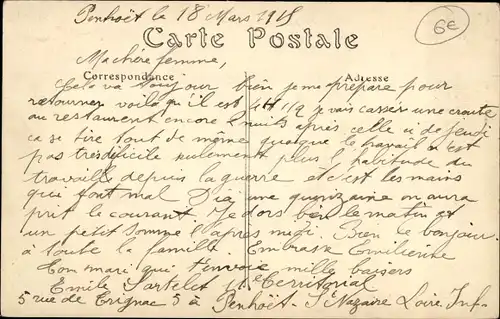 Penhoët le 18 Mars 1915
6€
Carte Postale
Ma chère femme,
Correspondance
Adresse
Cela va toujour bien je me prépare pour
retourner voilà qu'il est 4H 1/2 je vais casser une croute
au restaurent encore 2 nuits après celle ci de Jeudi
ca se tire tout de même quoique le travail n'est
pas très dificile seulement plus l'habitude du
travaille depuis la guerre et c'est les mains
qui font mal D'ici une quinzaine on aura
prit le courant Je dors bien le matin et
un petit somme l'après midi. Bien le bonjour
à toute la famille. Embrasse Emilienne
Ton mari qui t'envoie mille baisers
Emile Sartelet Territorial
5 rue de Trignac 5 à Penhoët - St Nazaire Loire Inf.